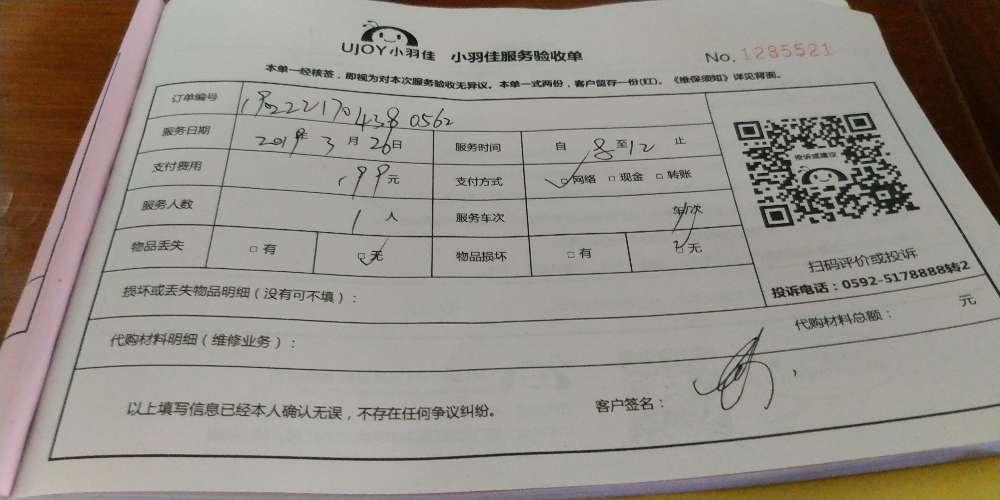 UJOY小羽佳 小羽佳服务验收单 No. 1285521
本单一经核签，即视为对本次服务验收无异议。本单一式两份，客户留存一份(红)。《维保须知》详见背面。
订单编号
服务日期 2019年 3 月 26日 服务时间 自 8 至 12 止
支付费用 199元 支付方式 □网络 □现金 □转账
服务人数 1 人 服务车次 车/次
物品丢失 □有 □无 物品损坏 □有 □无
投诉或建议
扫码评价或投诉
投诉电话：0592-5178888转2
损坏或丢失物品明细（没有可不填）：
代购材料明细（维修业务）： 代购材料总额： 元
以上填写信息已经本人确认无误，不存在任何争议纠纷。 客户签名：